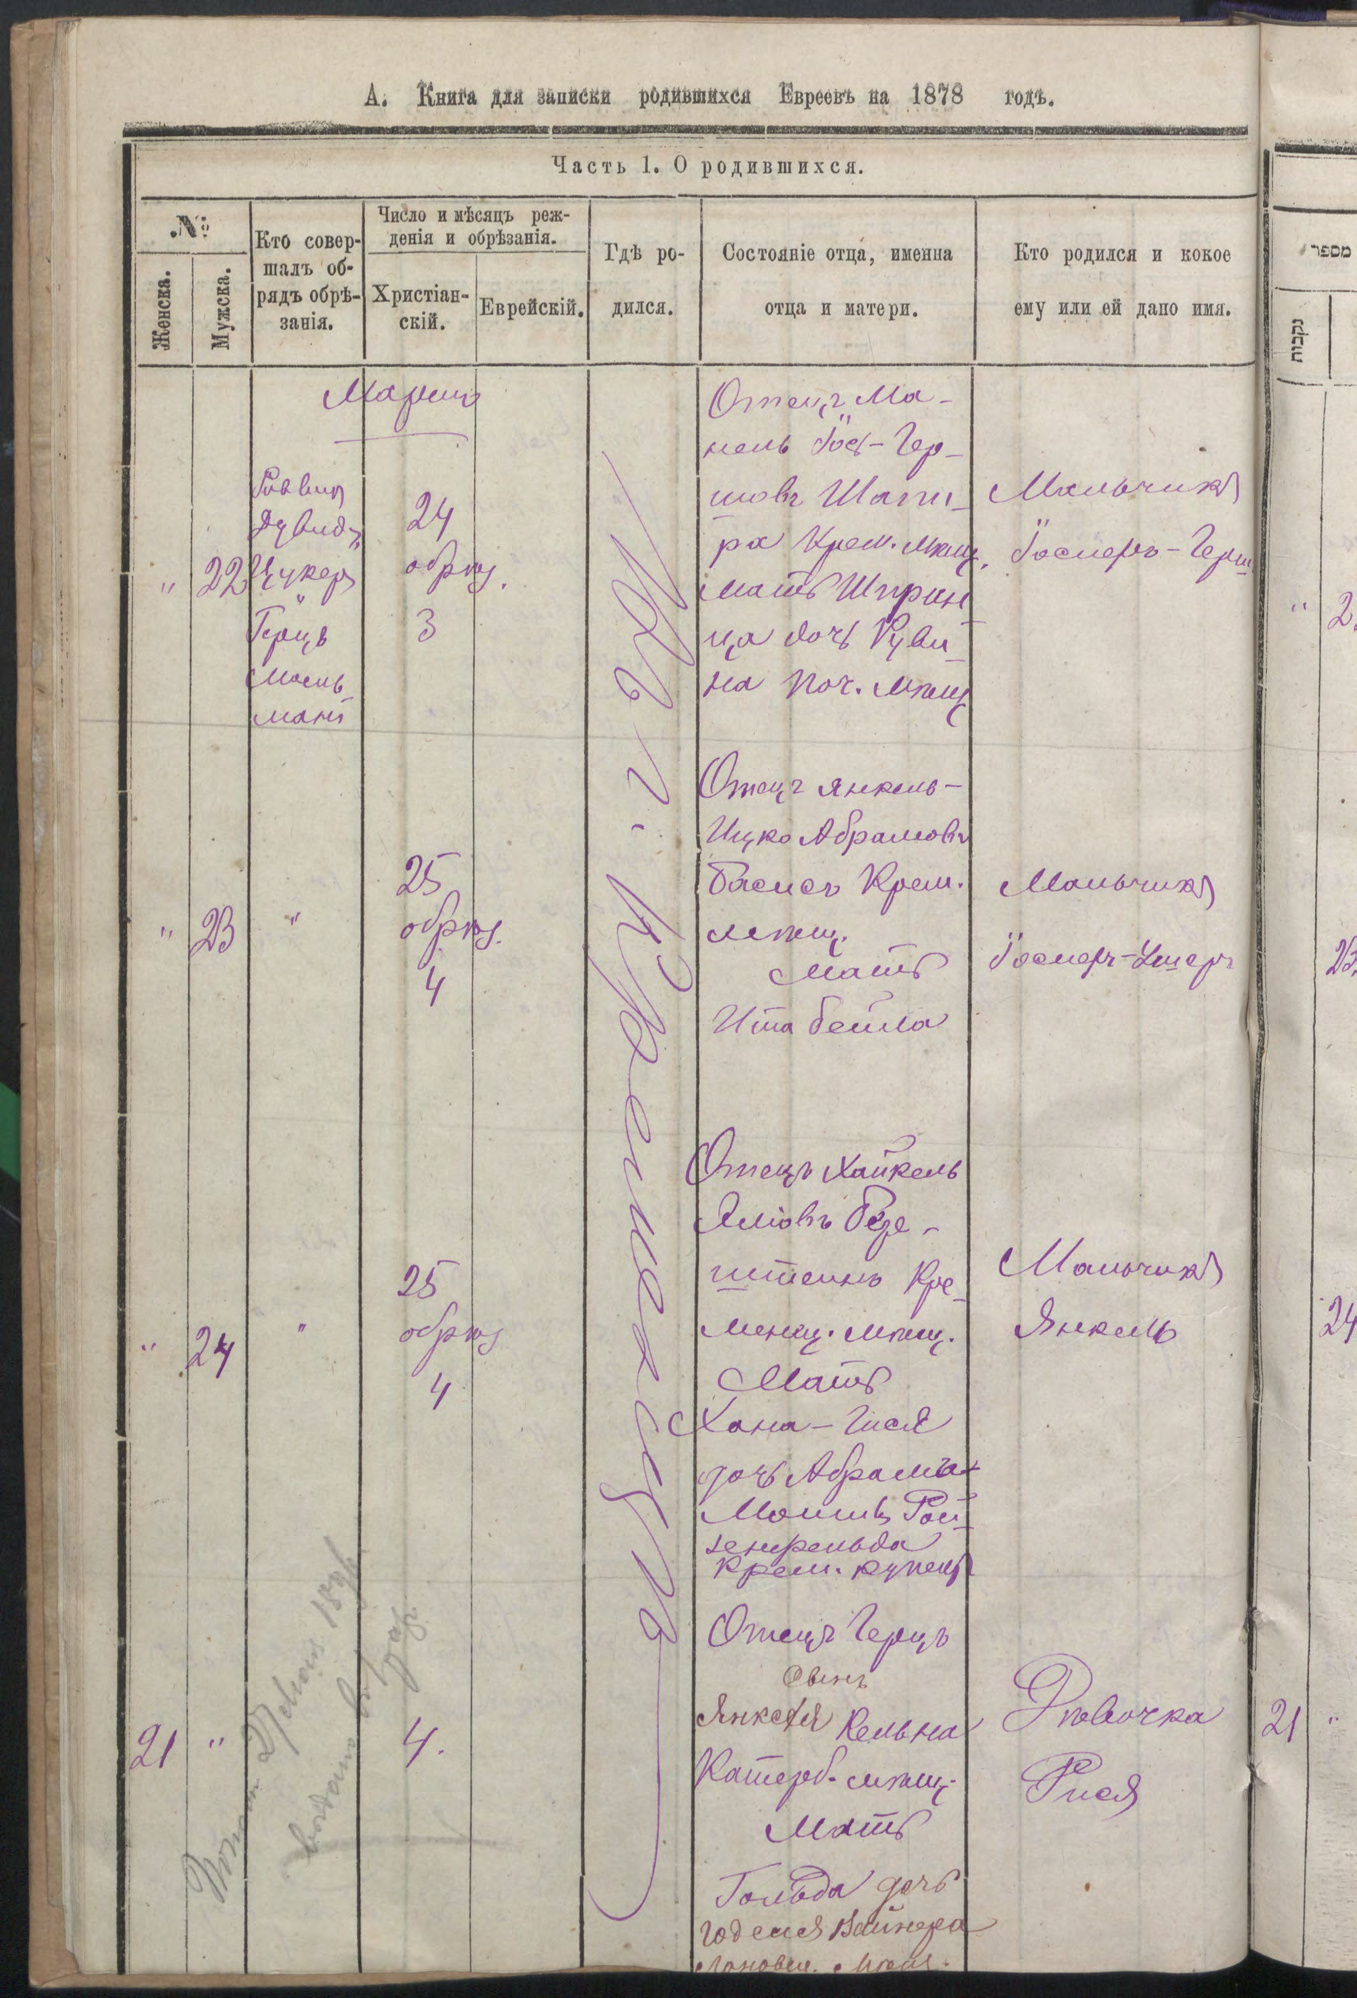 А. Книга для записки родившихся Евреевъ на 1878 годъ.
Часть 1. О родившихся.
№
Женска.
Мужска.
Кто совер-
шалъ об-
рядъ обрѣ-
занія.
Число и мѣсяцъ реж-
денія и обрѣзанія.
Христіан-
скій.
Еврейскій.
Гдѣ ро-
дился.
Состояніе отца, именна
отца и матери.
Кто родился и кокое
ему или ей дано имя.
Мартъ
Въ г. Кременцѣ
" 22
Раввинъ
Дувидъ
Цукеръ
Герцъ
24
обрѣз.
3
Отецъ Ма-
нель Іос-Гер-
шовъ Шапи-
ра Крем. мѣщ.
Мать Шприн
ца дочь Руви-
на Поч. мѣщ
Мальчикъ
" 23 "
25
обрѣз.
4
Отецъ Янкель-
Ицко Абрамовъ
Басисъ Крем.
мѣщ.
Мать
Ита Бейла
Мальчикъ
" 24 "
25
обрѣз
4
Отецъ Хайкель
штеинъ Кре-
менц. мѣщ.
Мать
Хана-Гися
дочь Абрама-
Мошка Рой-
зенфельда
Крем. купецъ
Мальчикъ
Янкель
21 "
4.
Отецъ Герцъ
сынъ
Янкеля Кельна
Катерб. мѣщ.
Мать
Гольда дочь
Вайнера
Дѣвочка
Рися
מספר
נקבות
" 2
23
24
21 "